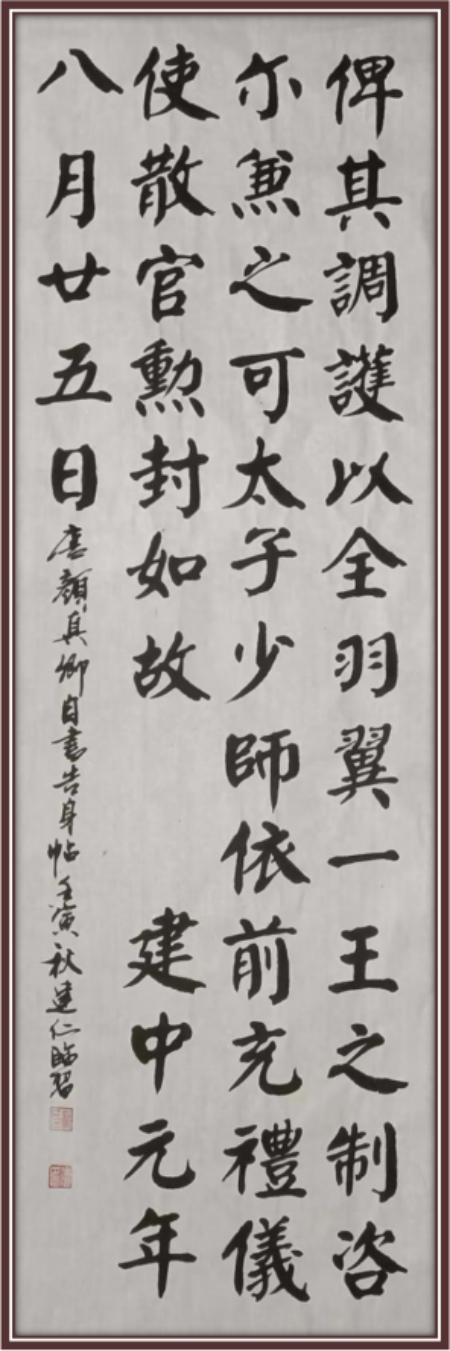 俾其調護以全羽翼一王之制咨
尓兼之可太子少師依前充禮儀
使散官勲封如故 建中元年
八月廿五日
唐顏真卿自書告身帖壬寅秋建仁臨習